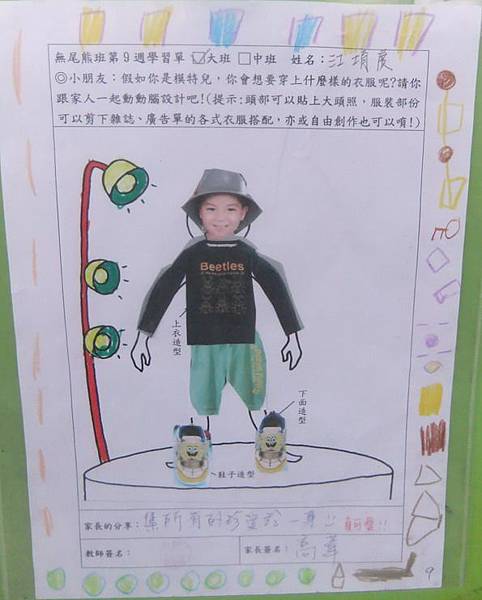 無尾熊班第9週學習單 ☑大班 □中班 姓名:江
◎小朋友:假如你是模特兒,你會想要穿上什麼樣的衣服呢?請你
跟家人一起動動腦設計吧!(提示:頭部可以貼上大頭照,服裝部份
可以剪下雜誌、廣告單的各式衣服搭配,亦或自由創作也可以唷!)
Beetles
上衣造型
下面造型
鞋子造型
家長的分享:集所有的珍愛於一身 
教師簽名: 家長簽名:
9